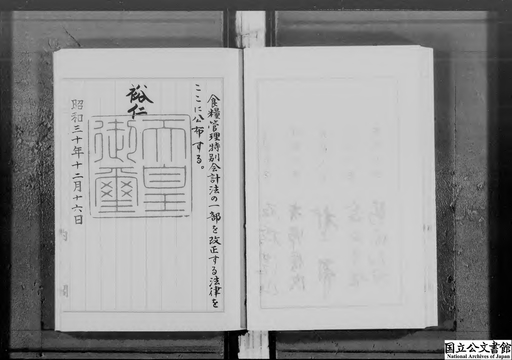 食糧管理特別会計法の一部を改正する法律を
ここに公布する。
裕仁
天皇
御璽
昭和三十年十二月十六日
国立公文書館
National Archives of Japan